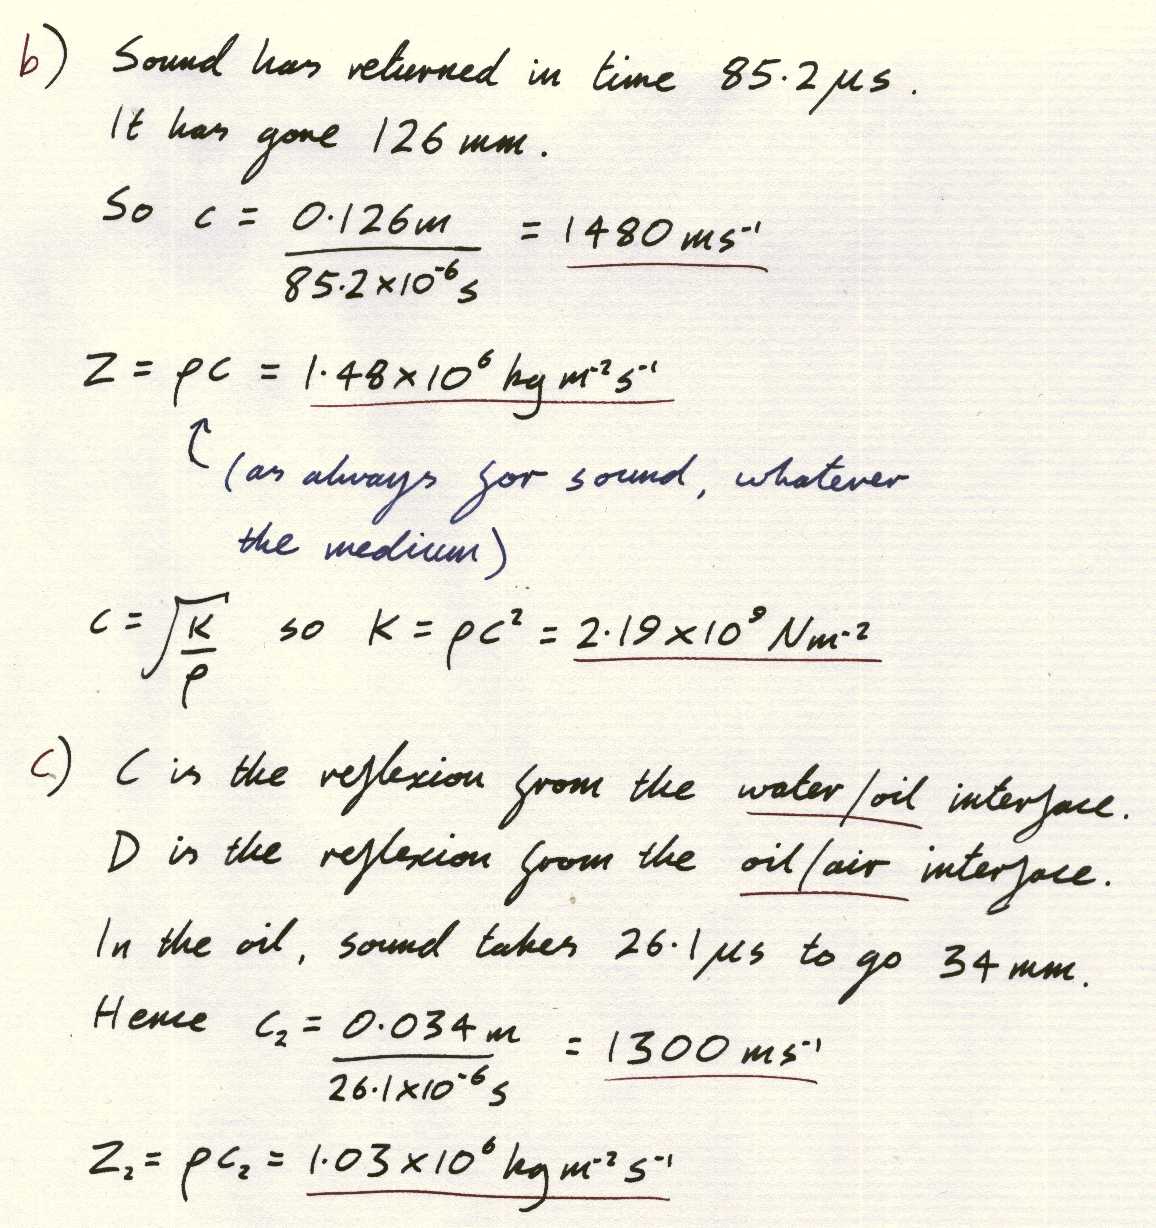 b) Sound has returned in time 85.2 μs.
It has gone 126 mm.
So c = 0.126m / 85.2×10⁻⁶s = 1480 ms⁻¹
Z = ρc = 1.48×10⁶ kg m⁻² s⁻¹
(as always for sound, whatever
the medium)
c = √(K/ρ) so K = ρc² = 2.19×10⁹ Nm⁻²
c) C is the reflexion from the water/oil interface.
D is the reflexion from the oil/air interface.
In the oil, sound takes 26.1 μs to go 34 mm.
Hence c₂ = 0.034 m / 26.1×10⁻⁶ s = 1300 ms⁻¹
Z₂ = ρc₂ = 1.03×10⁶ kg m⁻² s⁻¹